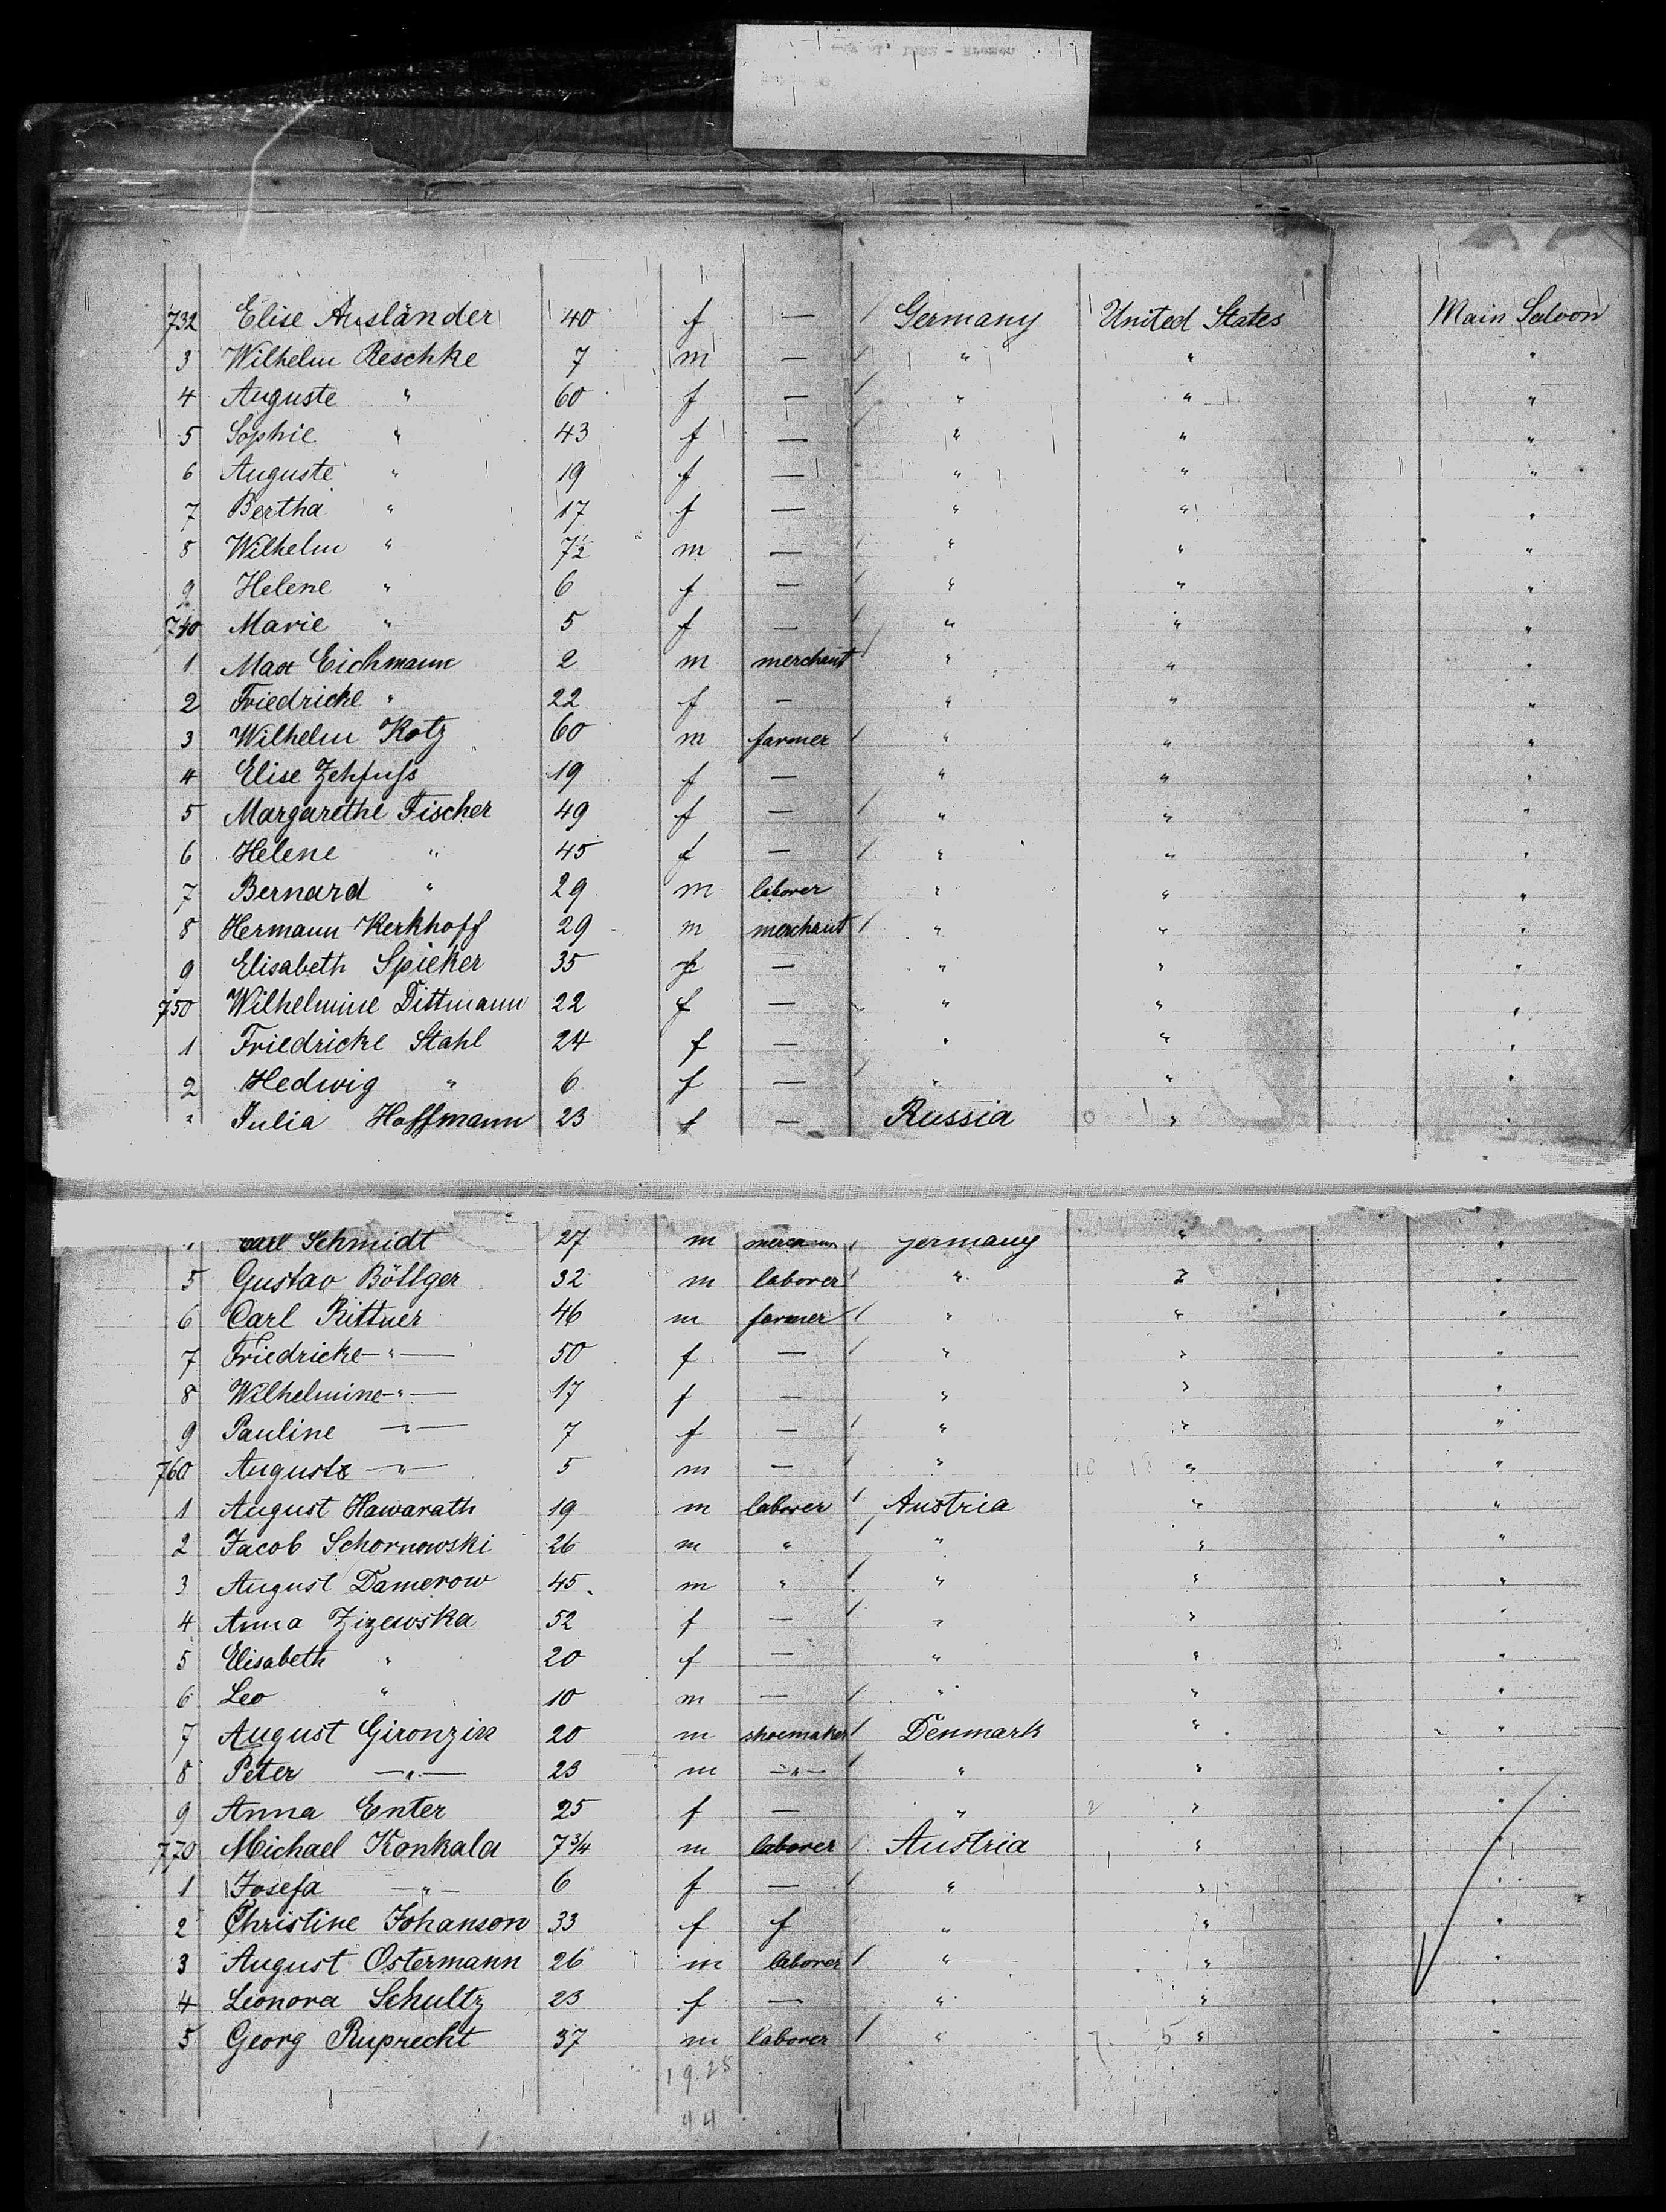 1882 - Bremen
732 Elise Ausländer 40 f — Germany United States Main Saloon
3 Wilhelm Reschke 7 m — " " "
4 Auguste " 60 f — " " "
5 Sophie " 43 f — " " "
6 Auguste " 19 f — " " "
7 Bertha " 17 f — " " "
8 Wilhelm " 7½ m — " " "
9 Helene " 6 f — " " "
740 Marie " 5 f — " " "
1 Max Eichmann 2 m merchant " " "
2 Friedricke " 22 f — " " "
3 Wilhelm Kotz 60 m farmer " " "
4 Elise Zehfuss 19 f — " " "
5 Margarethe Fischer 49 f — " " "
6 Helene " 45 f — " " "
7 Bernard " 29 m laborer " " "
8 Hermann Kerkhoff 29 m merchant " " "
9 Elisabeth Spieker 35 f — " " "
750 Wilhelmine Dittmann 22 f — " " "
1 Friedricke Stahl 24 f — " " "
2 Hedwig " 6 f — " " "
Julia Hoffmann 23 f — Russia " "
Carl Schmidt 27 m germany " "
5 Gustav Böttger 32 m laborer " " "
6 Carl Rittner 46 m farmer " " "
7 Friedricke —"— 50 f — " " "
8 Wilhelmine —"— 17 f — " " "
9 Pauline —"— 7 f — " " "
760 Auguste —"— 5 m — " " "
1 August Hawarath 19 m laborer Austria " "
2 Jacob Schornowski 26 m " " " "
3 August Damerow 45 m " " " "
4 Anna Zizewska 52 f — " " "
5 Elisabeth " 20 f — " " "
6 Leo " 10 m — " " "
7 August Gironzin 20 m shoemaker Denmark " "
8 Peter —"— 23 m —"— " " "
9 Anna Enter 25 f — " " "
770 Michael Konkala 7¾ m laborer Austria " "
1 Josefa —"— 6 f — " " "
2 Christine Johanson 33 f f " " "
3 August Ostermann 26 m laborer " " "
4 Leonora Schultz 23 f — " " "
5 Georg Ruprecht 37 m laborer " " "
19.25
94